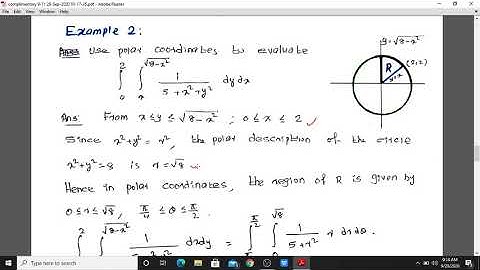 complimentary 8-11 28-Sep-2020 10-17-25.pdf - Adobe Reader
Example 2:
Use polar coordinates to evaluate
∫₀² ∫ₓ^√(8-x²) 1/(5+x²+y²) dy dx
y=√(8-x²)
R
(2,2)
y=x
Ans: From x ≤ y ≤ √(8-x²) ; 0 ≤ x ≤ 2 ✓
Since x²+y² = r², the polar description of the circle
x²+y²=8 is r=√8
Hence in polar coordinates, the region of R is given by
0 ≤ r ≤ √8, π/4 ≤ θ ≤ π/2.
2 √(8-x²) 1 dxdy = π/2 √8 1/(5+r²) r dr dθ.
Type here to search
9/29/2020